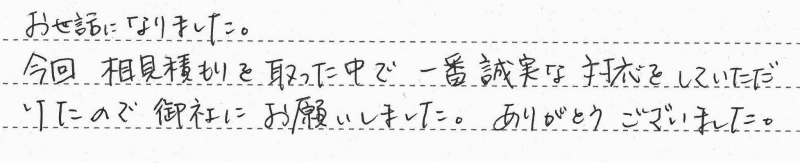 お世話になりました。
今回 相見積もりを取った中で 一番誠実な対応をしていただ
けたので御社にお願いしました。ありがとうございました。